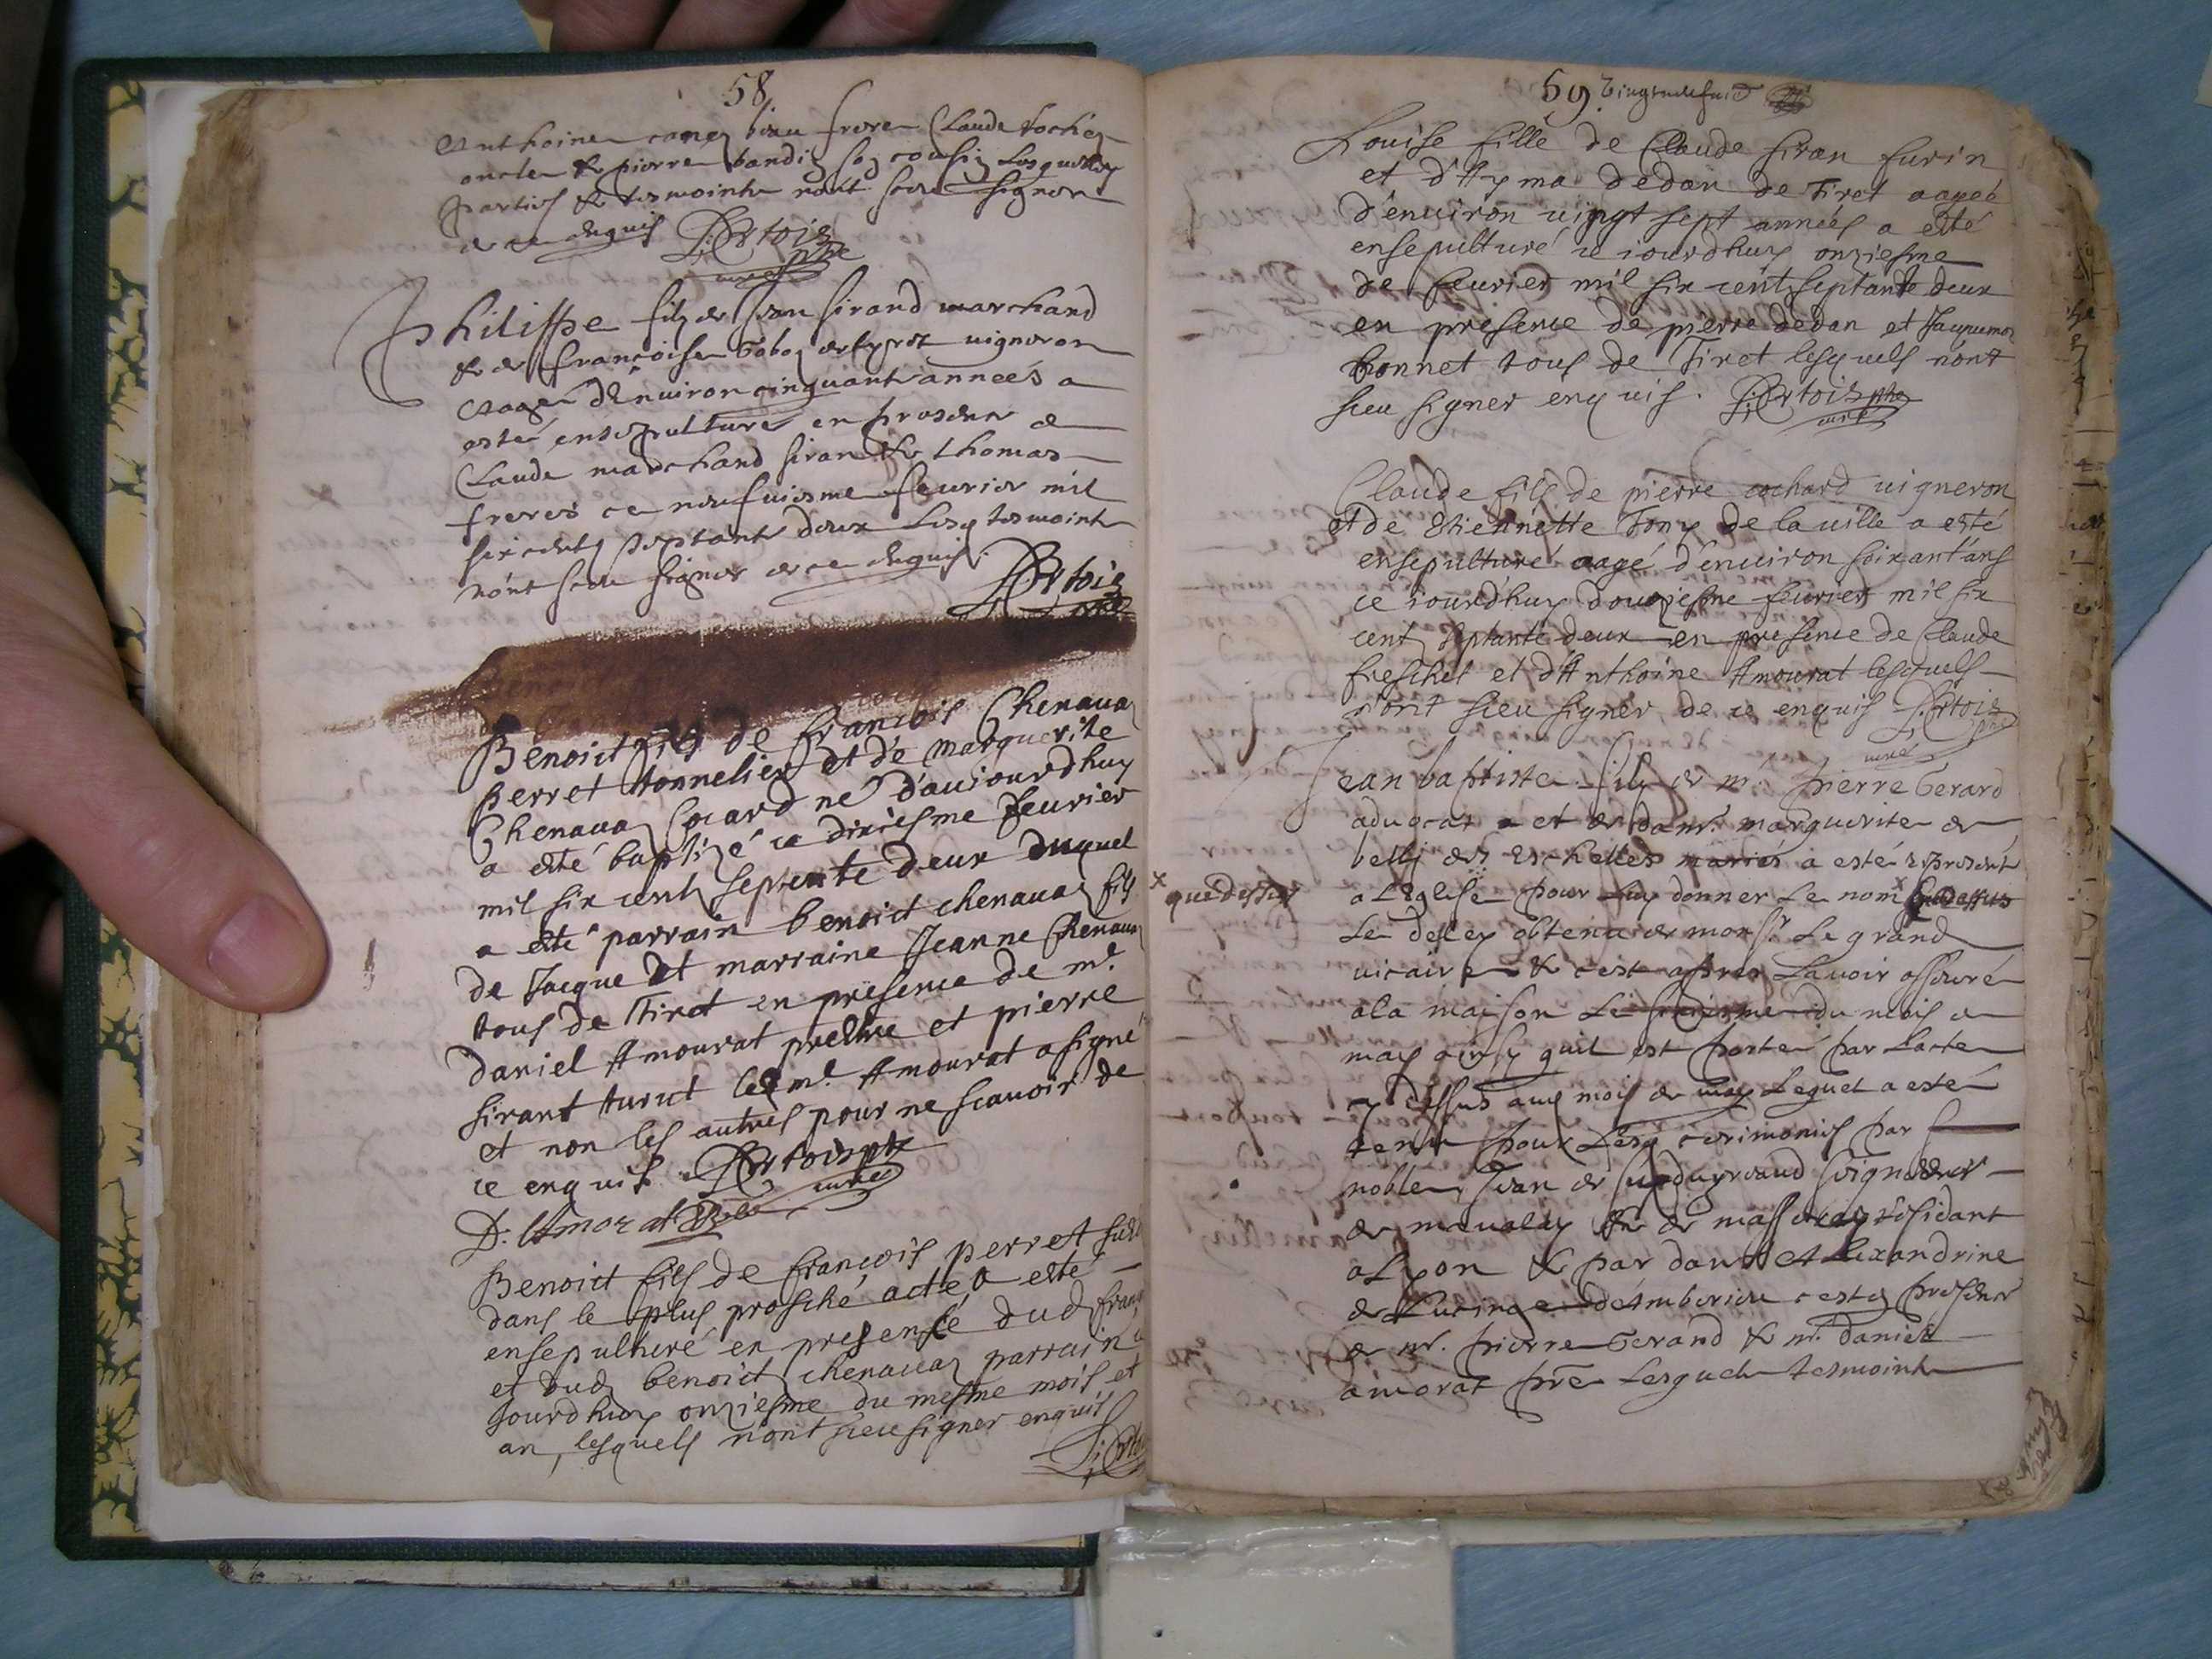 58
Anthoine beau frere Claude
oncle & pierre son cousin lesquelz
parties & tesmointz n'ont sceu signer
de ce enquis P: Artois
pbre
curé
Philippe filz de Jean sirand marchand
& de françoise vigneron
aagé d'environ cinquante années a
esté ensepulturé en presence de
Claude marchand siran & thomas
freres ce neufuiesme feurier mil
six centz septante deux Lesq tesmointz
n'ont sceu signer de ce enquis.
P: Artois
pbre
Benoict fils de francois Chenauaz
perret tonnelier et de marguerite
Chenauaz Cocard né d'auiourdhuy
a esté baptizé ce dixiesme feurier
mil six centz septente deux duquel
a esté parrain benoict chenauaz fils
de Jacque et marraine Jeanne Chenauaz
tous de Tiret en presence de mr.
daniel Amourat prestre et pierre
sirant turut led mr. Amourat a signé
et non les autres pour ne scauoir de
ce enquis P: Artois pbre
curé
D: Amorat
Benoict fils de francois perret
dans le plus prosche acte a esté
ensepulturé en presence dud
et dud benoict chenauaz parrain
jourdhuy onziesme du mesme mois et
an, lesquels n'ont sceu signer enquis
P: Artois
59.
Louise fille de Claude siran furin
et d'Ayma dedan de Tiret aageé
d'enuiron vingt sept années a esté
ensepulturé ce iourdhuy onziesme
de feurier mil six centz septante deux
en presence de pierre dedan et Jaquemoz
bonnet tous de Tiret lesquels n'ont
sceu signer enquis. P: Artois pbre
curé
Claude fils de pierre cochard vigneron
et de Estiennette Tony de la uille a esté
ensepulturé aagé d'enuiron soixant'ans
ce iourd'huy douziesme feurier mil six
centz septante deux en presence de Claude
freschet et d'Anthoine Amourat lesquels
n'ont sceu signer de ce enquis P: Artois
pbre
curé
Jean baptiste filz de mr. pierre Gerard
aduocat et de damle. marguerite de
belly des Eschelles mariés a esté represente
a L'Eglise pour luy donner le nom x
x
que dessus
Le deley obtenu de monsr. Le grand
vicaire & c'est apres Lauoir
a la maison Le du mois de
may ainsy quil est porté par Lacte
cy dessus au mois de may Lequel a esté
tenu pour Lesq cerimonies par
noble Jean de Seigneur
de & de residant
a Lyon & par dame Alexandrine
de Lucinge d'Amberieu presence
de mr. pierre Gerard & mr. daniel
amorat pbre Lesquelz tesmointz